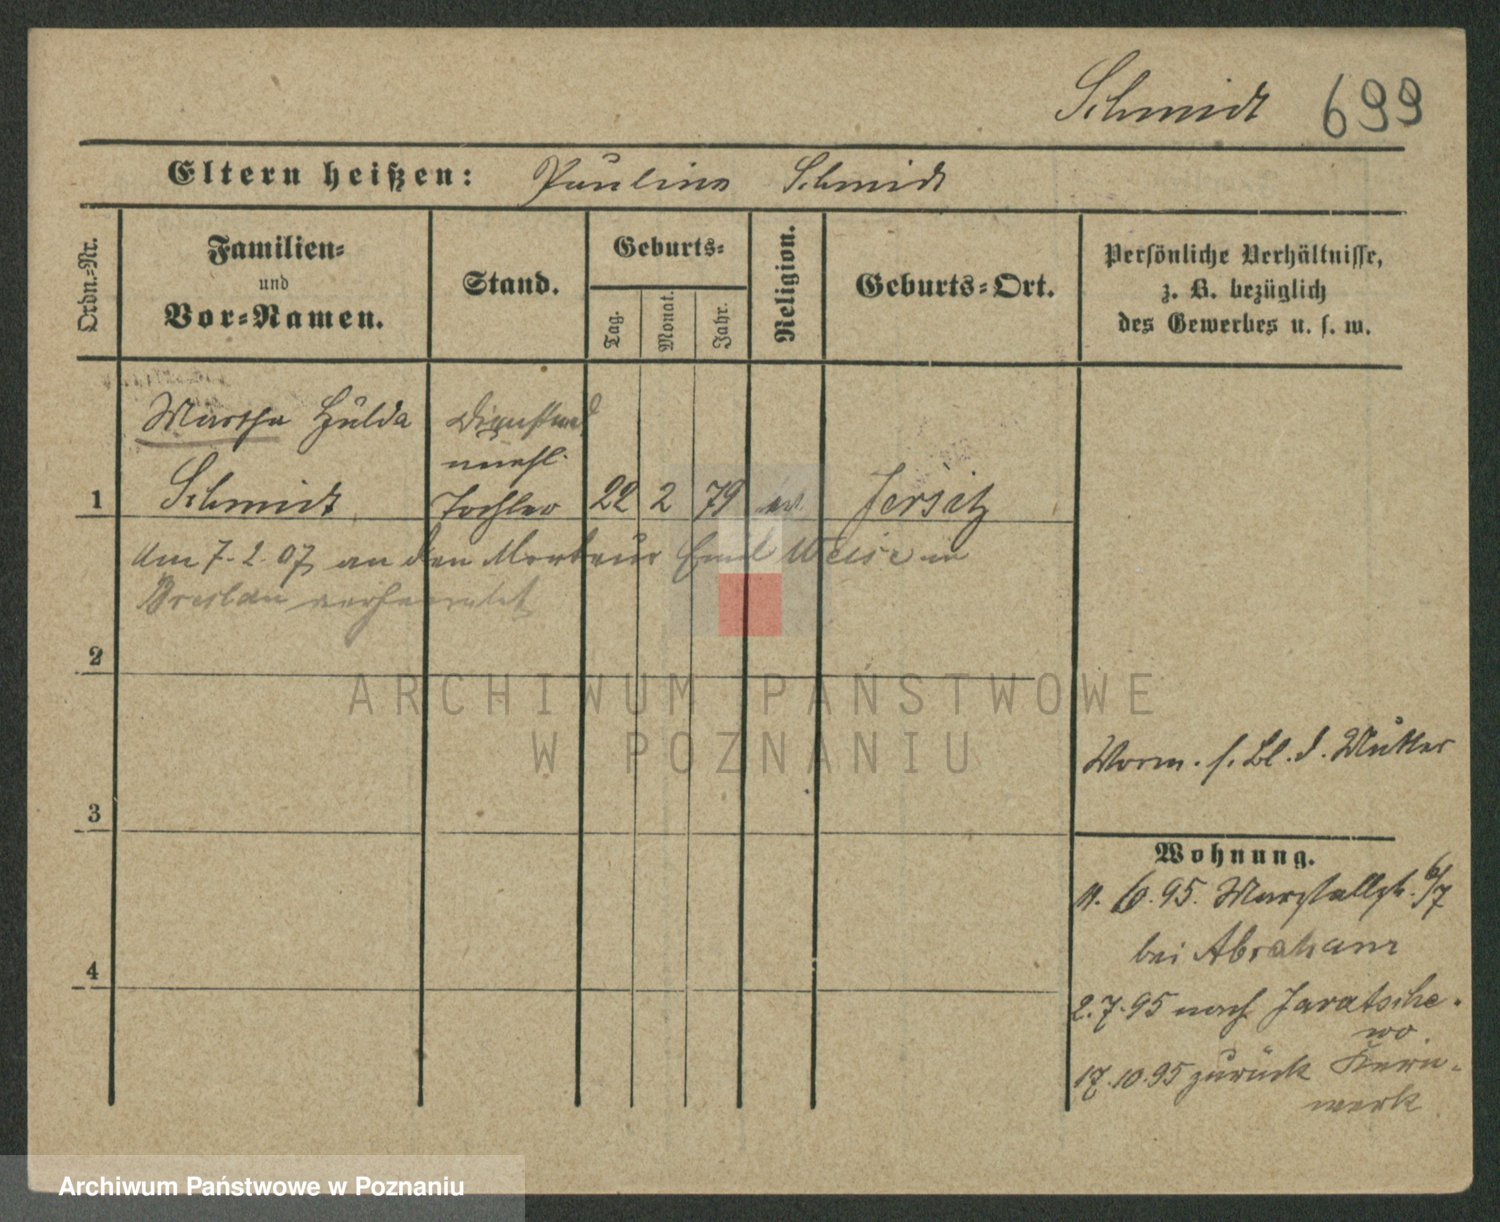 Schmidt 699
Eltern heißen: Pauline Schmidt
Ordn.-Nr.
Familien-
und
Vor-Namen.
Stand.
Geburts-
Tag.
Monat.
Jahr.
Religion.
Geburts-Ort.
Persönliche Verhältnisse,
z. B. bezüglich
des Gewerbes u. s. w.
Martha Hulda
Schmidt
Dienstmd
unehl.
Tochter
1 22 2 79 ev. Jersitz
Am 7. 2. 07 an den Monteur Emil Weise in
Breslau verheiratet
2
3
4
Vorm. s. Bl. d. Mutter
Wohnung.
11. 6. 95. Marstallstr. 6/7
bei Abraham
2. 7. 95 nach Jaratsche-
wo.
17. 10. 95 zurück Kern-
werk
ARCHIWUM PAŃSTWOWE
W POZNANIU
Archiwum Państwowe w Poznaniu